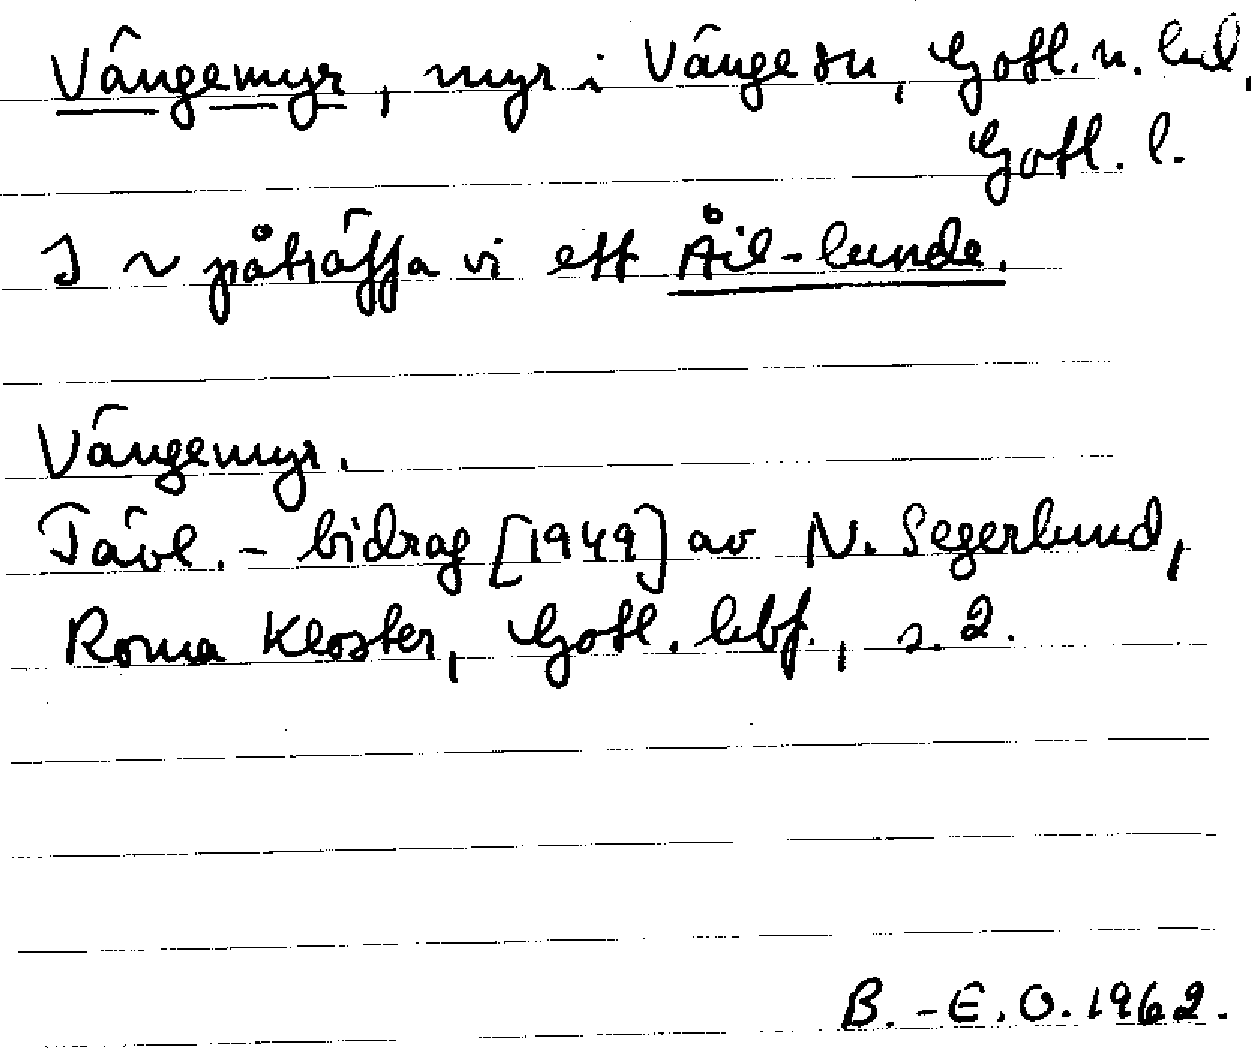 Vängemyr, myr i Vänge sn, Gotl. n. hd,
Gotl. l.
I ~ påträffa vi ett Åil-lunde.
Vängemyr.
Tävl.-bidrag [1949] av N. Segerlund,
Roma Kloster, Gotl. lbf., s. 2.
B.-E.O. 1962.